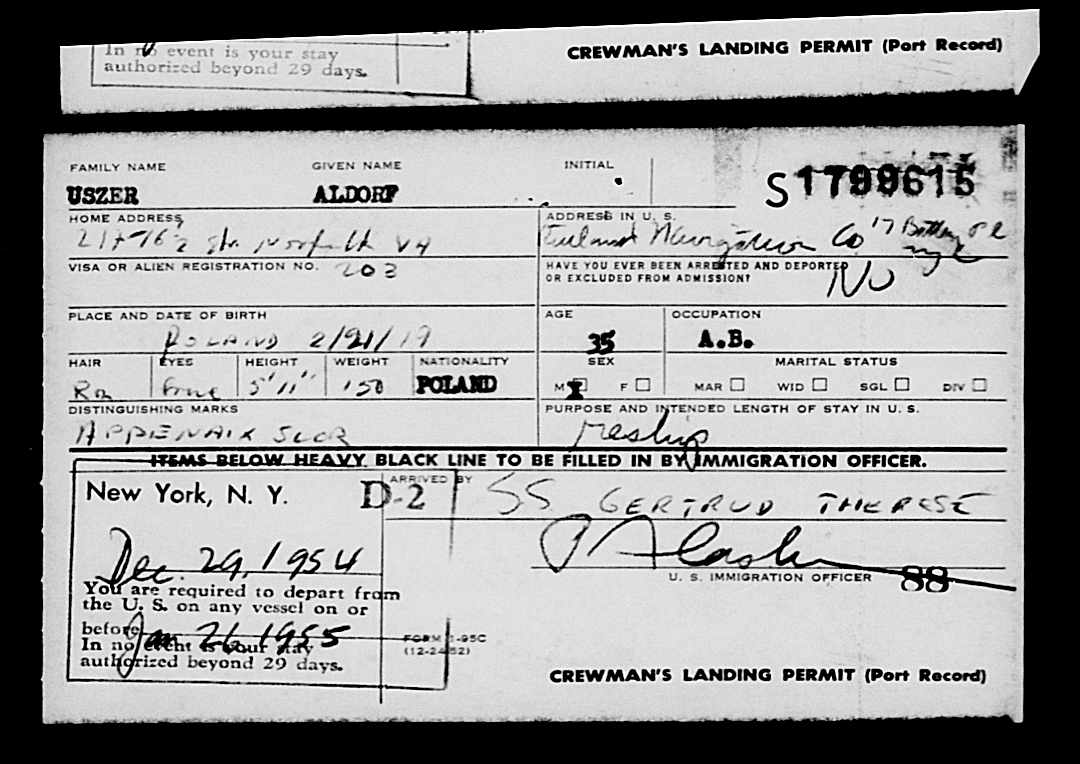 In no event is your stay
authorized beyond 29 days.
CREWMAN'S LANDING PERMIT (Port Record)
FAMILY NAME GIVEN NAME INITIAL
USZER ALDORF S1799615
HOME ADDRESS ADDRESS IN U. S.
Navigation Co. 17 Battery Pl
VA
VISA OR ALIEN REGISTRATION NO. 203
HAVE YOU EVER BEEN ARRESTED AND DEPORTED
OR EXCLUDED FROM ADMISSION? NO
PLACE AND DATE OF BIRTH AGE OCCUPATION
POLAND 2/21/19 35 A.B.
HAIR EYES HEIGHT WEIGHT NATIONALITY SEX MARITAL STATUS
5'11" 150 POLAND M X F MAR WID SGL DIV
DISTINGUISHING MARKS PURPOSE AND INTENDED LENGTH OF STAY IN U. S.
APPENDIX SCAR reship
ITEMS BELOW HEAVY BLACK LINE TO BE FILLED IN BY IMMIGRATION OFFICER.
New York, N. Y. D-2 ARRIVED BY SS GERTRUD THERESE
Dec. 29, 1954
U. S. IMMIGRATION OFFICER 88
You are required to depart from
the U. S. on any vessel on or
before Jan 26, 1955
In no event is your stay
authorized beyond 29 days.
FORM I-95C
(12-24-52)
CREWMAN'S LANDING PERMIT (Port Record)